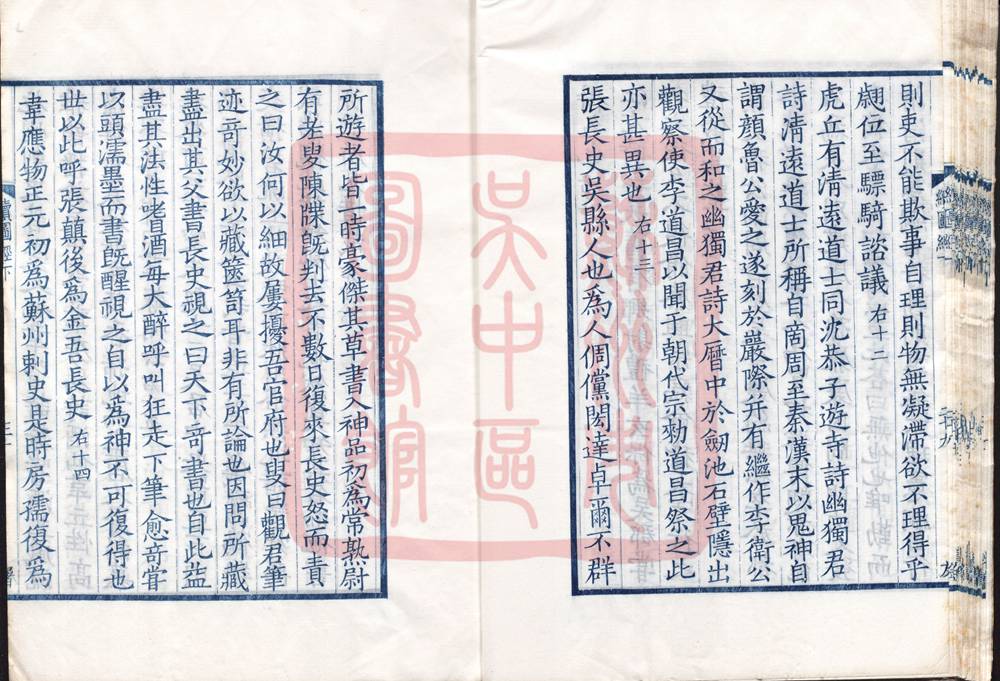 則吏不能欺事自理則物無凝滯欲不理得乎
翽位至驃騎諮議 右十二
虎丘有清遠道士同沈恭子遊寺詩幽獨君
詩清遠道士所稱自商周至秦漢末以鬼神自
謂顏魯公愛之遂刻於嚴際并有繼作李衛公
又從而和之幽獨君詩大曆中於劒池石壁隱出
觀察使李道昌以聞于朝代宗勑道昌祭之此
亦甚異也 右十三
張長史吳縣人也為人倜儻閎達卓爾不群
所遊者皆一時豪傑其草書入神品初為常熟尉
有老叟陳牒旣判去不數日復來長史怒而責
之曰汝何以細故屢擾吾官府也叟曰觀君筆
迹奇妙欲以藏篋笥耳非有所論也因問所藏
盡出其父書長史視之曰天下奇書也自此益
盡其法性嗜酒每大醉呼叫狂走下筆愈奇甞
以頭濡墨而書旣醒視之自以為神不可復得也
世以此呼張顛後為金吾長史 右十四
韋應物正元初為蘇州刺史是時房孺復為
續圖經下
吳中區
圖書館